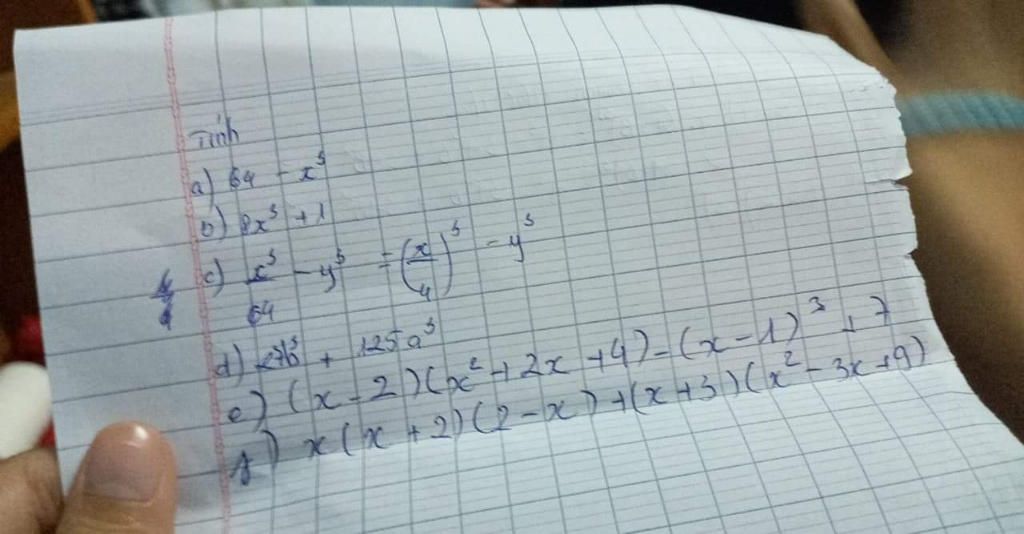 Tính
a) 64 - x³
b) 8x³ + 1
c) x³/64 - y³ = (x/4)³ - y³
d) 27b³ + 125a³
e) (x - 2)(x² + 2x + 4) - (x - 1)³ + 7
f) x(x + 2)(2 - x) + (x + 3)(x² - 3x + 9)